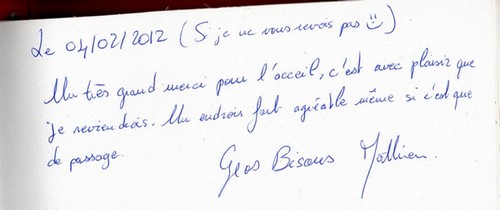 Le 04/02/2012 (Si je ne vous revois pas ☺).
Un très grand merci pour l'acceil, c'est avec plaisir que
je reviendrais. Un endrois fort agréable même si c'est que
de passage.
Gros Bisous Mathieu.